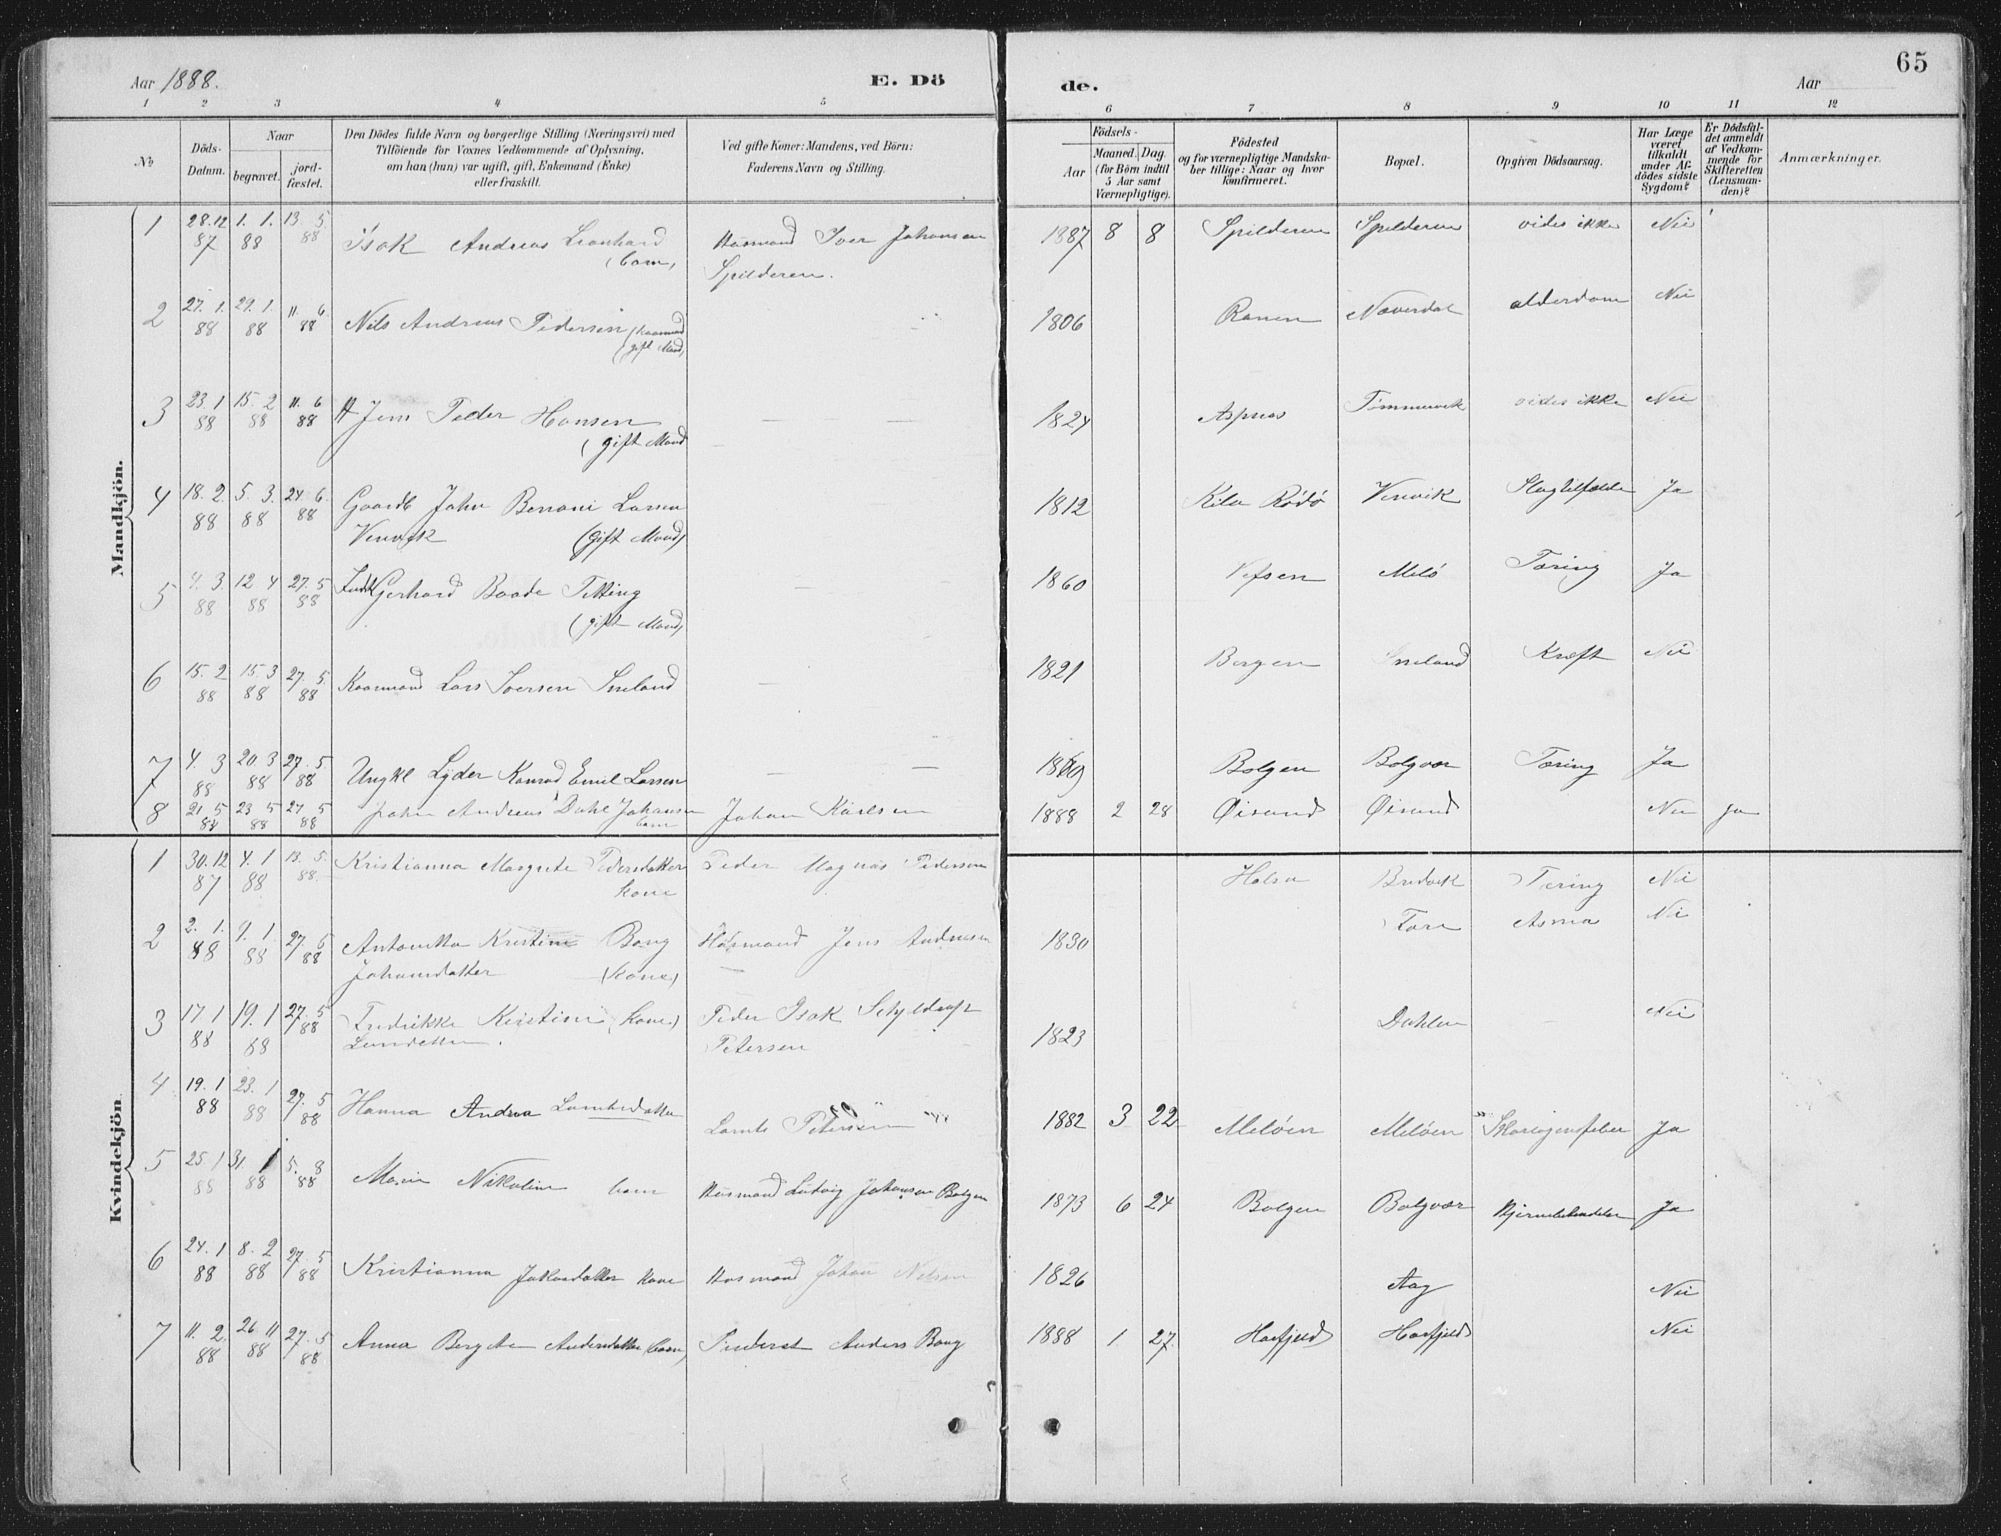 65
Aar 1888. E. Dö de. Aar
1 2 3 4 5 6 7 8 9 10 11 12
No
Döds-Datum.
Naar
begravet. jord-fæstet.
Den Dödes fulde Navn og borgerlige Stilling (Næringsvei) med
Tilföiende for Voxnes Vedkommende af Oplysning,
om han (hun) var ugift, gift, Enkemand (Enke)
eller fraskilt.
Ved gifte Koner: Mandens, ved Börn:
Faderens Navn og Stilling.
Födsels-
Aar
Maaned. Dag.
(for Börn indtil
5 Aar samt
Værnepligtige).
Födested
og for værnepligtige Mandska-
ber tillige: Naar og hvor
konfirmeret.
Bopæl.
Opgiven Dödsaarsag.
Har Læge
været
tilkaldt
under Af-
dödes sidste
Sygdom?
Er Dödsfal-
det anmeldt
af Vedkom-
mende for
Skifteretten
(Lensman-
den)?
Anmærkninger.
Mandkjön.
1 28.12 87 1. 1. 88 13. 5 88 Isak Andreas Leonhard Husmand Iver Johansen 1887 8 8 Spilderen Spilderen vides ikke Nei
(barn) Spilderen.
2 27. 1. 88 29. 1. 88 11. 6 88 Nils Andreas Pedersen (kaarmand 1806 Ranen Næverdal alderdom Nei
(gift Mand)
3 23. 1 88 15. 2 88 11. 6 88 Jens Peder Hansen — — 1824 Aspnes Tømmervik vides ikke Nei
(gift Mand
4 18. 2. 88 5. 3. 88 24 6. 88 Gaardb John Benoni Larsen 1812 Kila Rödö Vervik Slagtilfælde Ja
Vervik (gift Mand)
5 4. 3 88 12 4 88 27. 5 88 Gerhard Baade Titting — 1860 Vefsen Melö Tæring Ja
(gift Mand)
6 15. 2 88 15. 3 88 27. 5. 88 Kaarmand Lars Iversen Sneland — 1821 Bergen Sneland Kræft Nei
7 4. 3 88 20. 3 88 27. 5 88 Ungkl Lyder Konrad Emil Larsen — — 1869 Bolgen Bolgvær Tæring Ja
8 21. 5 88 23 5 88 27. 5 88 John Andreas Dahl Johansen Johan Karlsen 1888 2 28 Øisund Øisund Nei ja
barn
Kvindekjön
1 30.12 87 4. 1 88 13. 5. 88. Kristianna Margrete Pedersdatter Peder Magnus Pedersen Halsa Bredvik Tæring Nei
kone
2 2. 1. 88 9. 1 88 27. 5 88 Antonetta Kristine Bang Husmand Jens Andersen 1830 Fore Asma Nei
Johansdatter (kone)
3 17. 1 88 19. 1 88 27. 5 88 Fredrikke Kristine (kone) Peder Isak Schjeldrup 1823 Dahlen — Nei
Petersen
4 19. 1 88 23. 1 88 27. 5 88 Hanna Andrea Lorntsdatter Lornts Petersen 1882 3 22 Melöen Melöen Skarlagensfeber Ja
5 25. 1 88 31. 1 88 5. 8 88 Marie Nikoline barn Husmand Ludvig Johansen Bolgen 1873 6 24 Bolgen Bolgvær Hjernebetændelse Ja
6 24. 1 88 8. 2 88 27. 5 88 Kristianna Jakobsdatter kone Husmand Johan Nilsen 1826 Aag Nei
7 11. 2. 88 26 11 88 27. 5 88 Anna Bergitte Andersdatter (barn) Anders Bang 1888 1 27. Havfjeld Havfjeld Nei